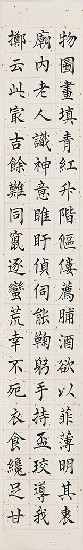 物圖畫填青紅升階傴僂薦脯酒欲以菲薄明其衷
廟內老人識神意睢盱偵伺能鞠躬手持盃珓導我
擲云此㝡吉餘難同竄逐蠻荒幸不死衣食纔足甘